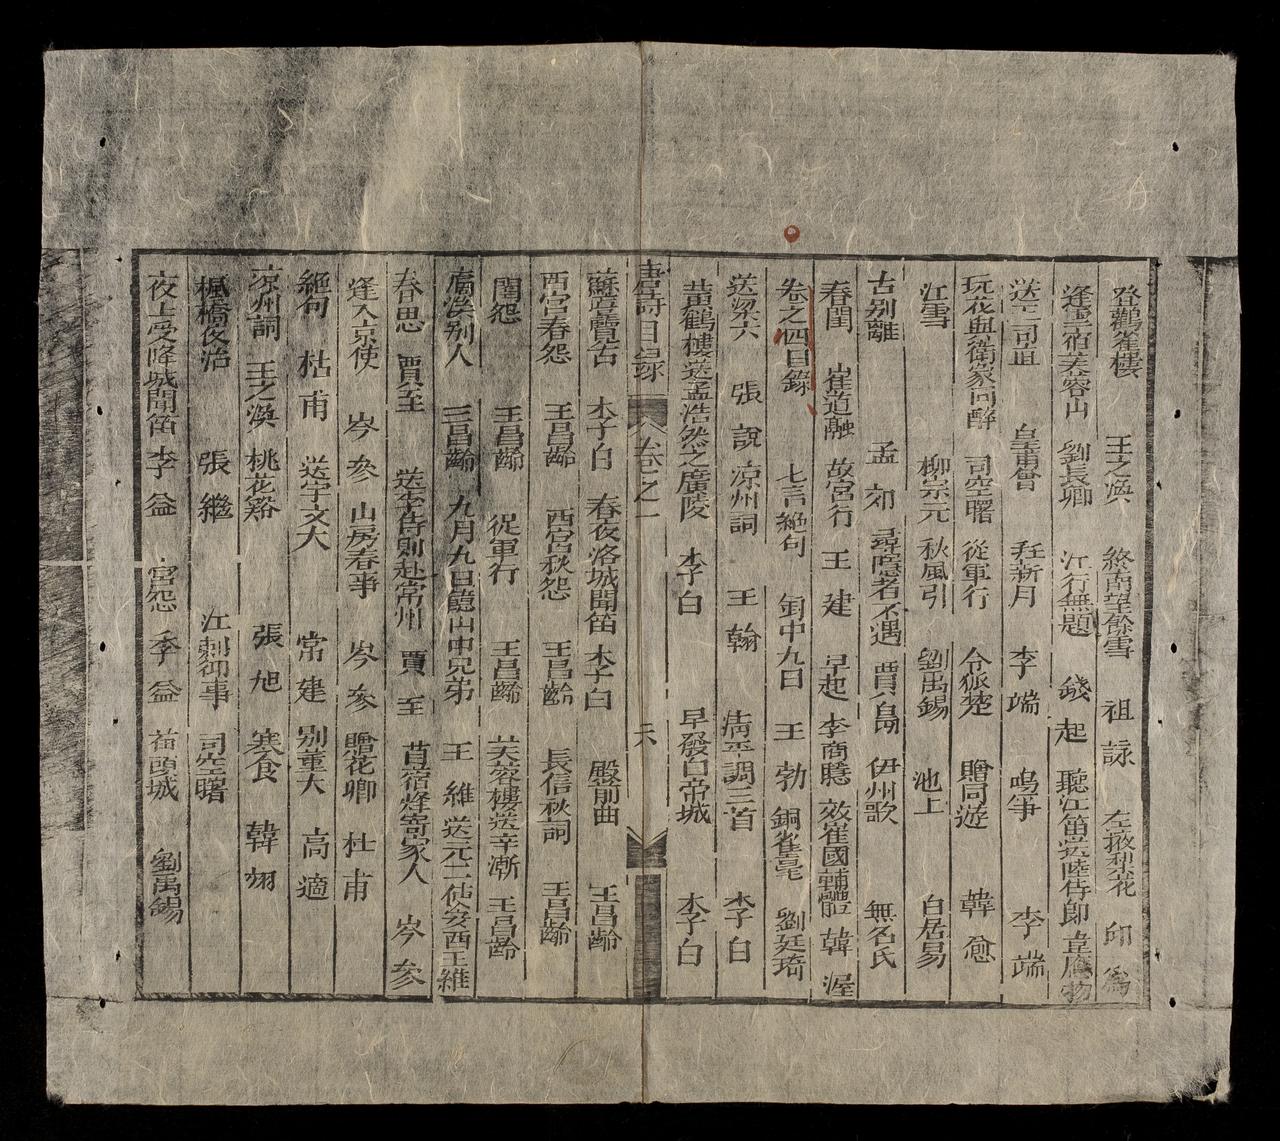 登鸛雀樓 王之渙 終南望餘雪 祖詠 左掖梨花 丘為
逢雪宿芙蓉山 劉長卿 江行無題 錢起 聽江笛送陸侍郎 韋應物
送王司直 皇甫曾 拜新月 李端 鳴箏 李端
玩花與衛象同醉 司空曙 從軍行 令狐楚 贈同遊 韓愈
江雪 柳宗元 秋風引 劉禹錫 池上 白居易
古別離 孟郊 尋隱者不遇 賈島 伊州歌 無名氏
春閨 崔道融 故宮行 王建 早起 李商隱 效崔國輔體 韓渥
卷之四目錄 七言絶句 蜀中九日 王勃 銅雀臺 劉廷琦
送梁六 張說 涼州詞 王翰 清平調三首 李白
黃鶴樓送孟浩然之廣陵 李白 早發白帝城 李白
唐詩目録 卷之一 六
蘇臺覽古 李白 春夜洛城聞笛 李白 殿前曲 王昌齡
西宮春怨 王昌齡 西宮秋怨 王昌齡 長信秋詞 王昌齡
閨怨 王昌齡 從軍行 王昌齡 芙蓉樓送辛漸 王昌齡
別人 王昌齡 九月九日憶山中兄弟 王維 送元二使安西 王維
春思 賈至 送李侍郎赴常州 賈至 苜蓿烽寄家人 岑參
逢入京使 岑參 山房春事 岑參 贈花卿 杜甫
絶句 杜甫 送宇文六 常建 別董大 高適
涼州詞 王之渙 桃花谿 張旭 寒食 韓翃
楓橋夜泊 張繼 江村卽事 司空曙
夜上受降城聞笛 李益 宮怨 李益 石頭城 劉禹錫